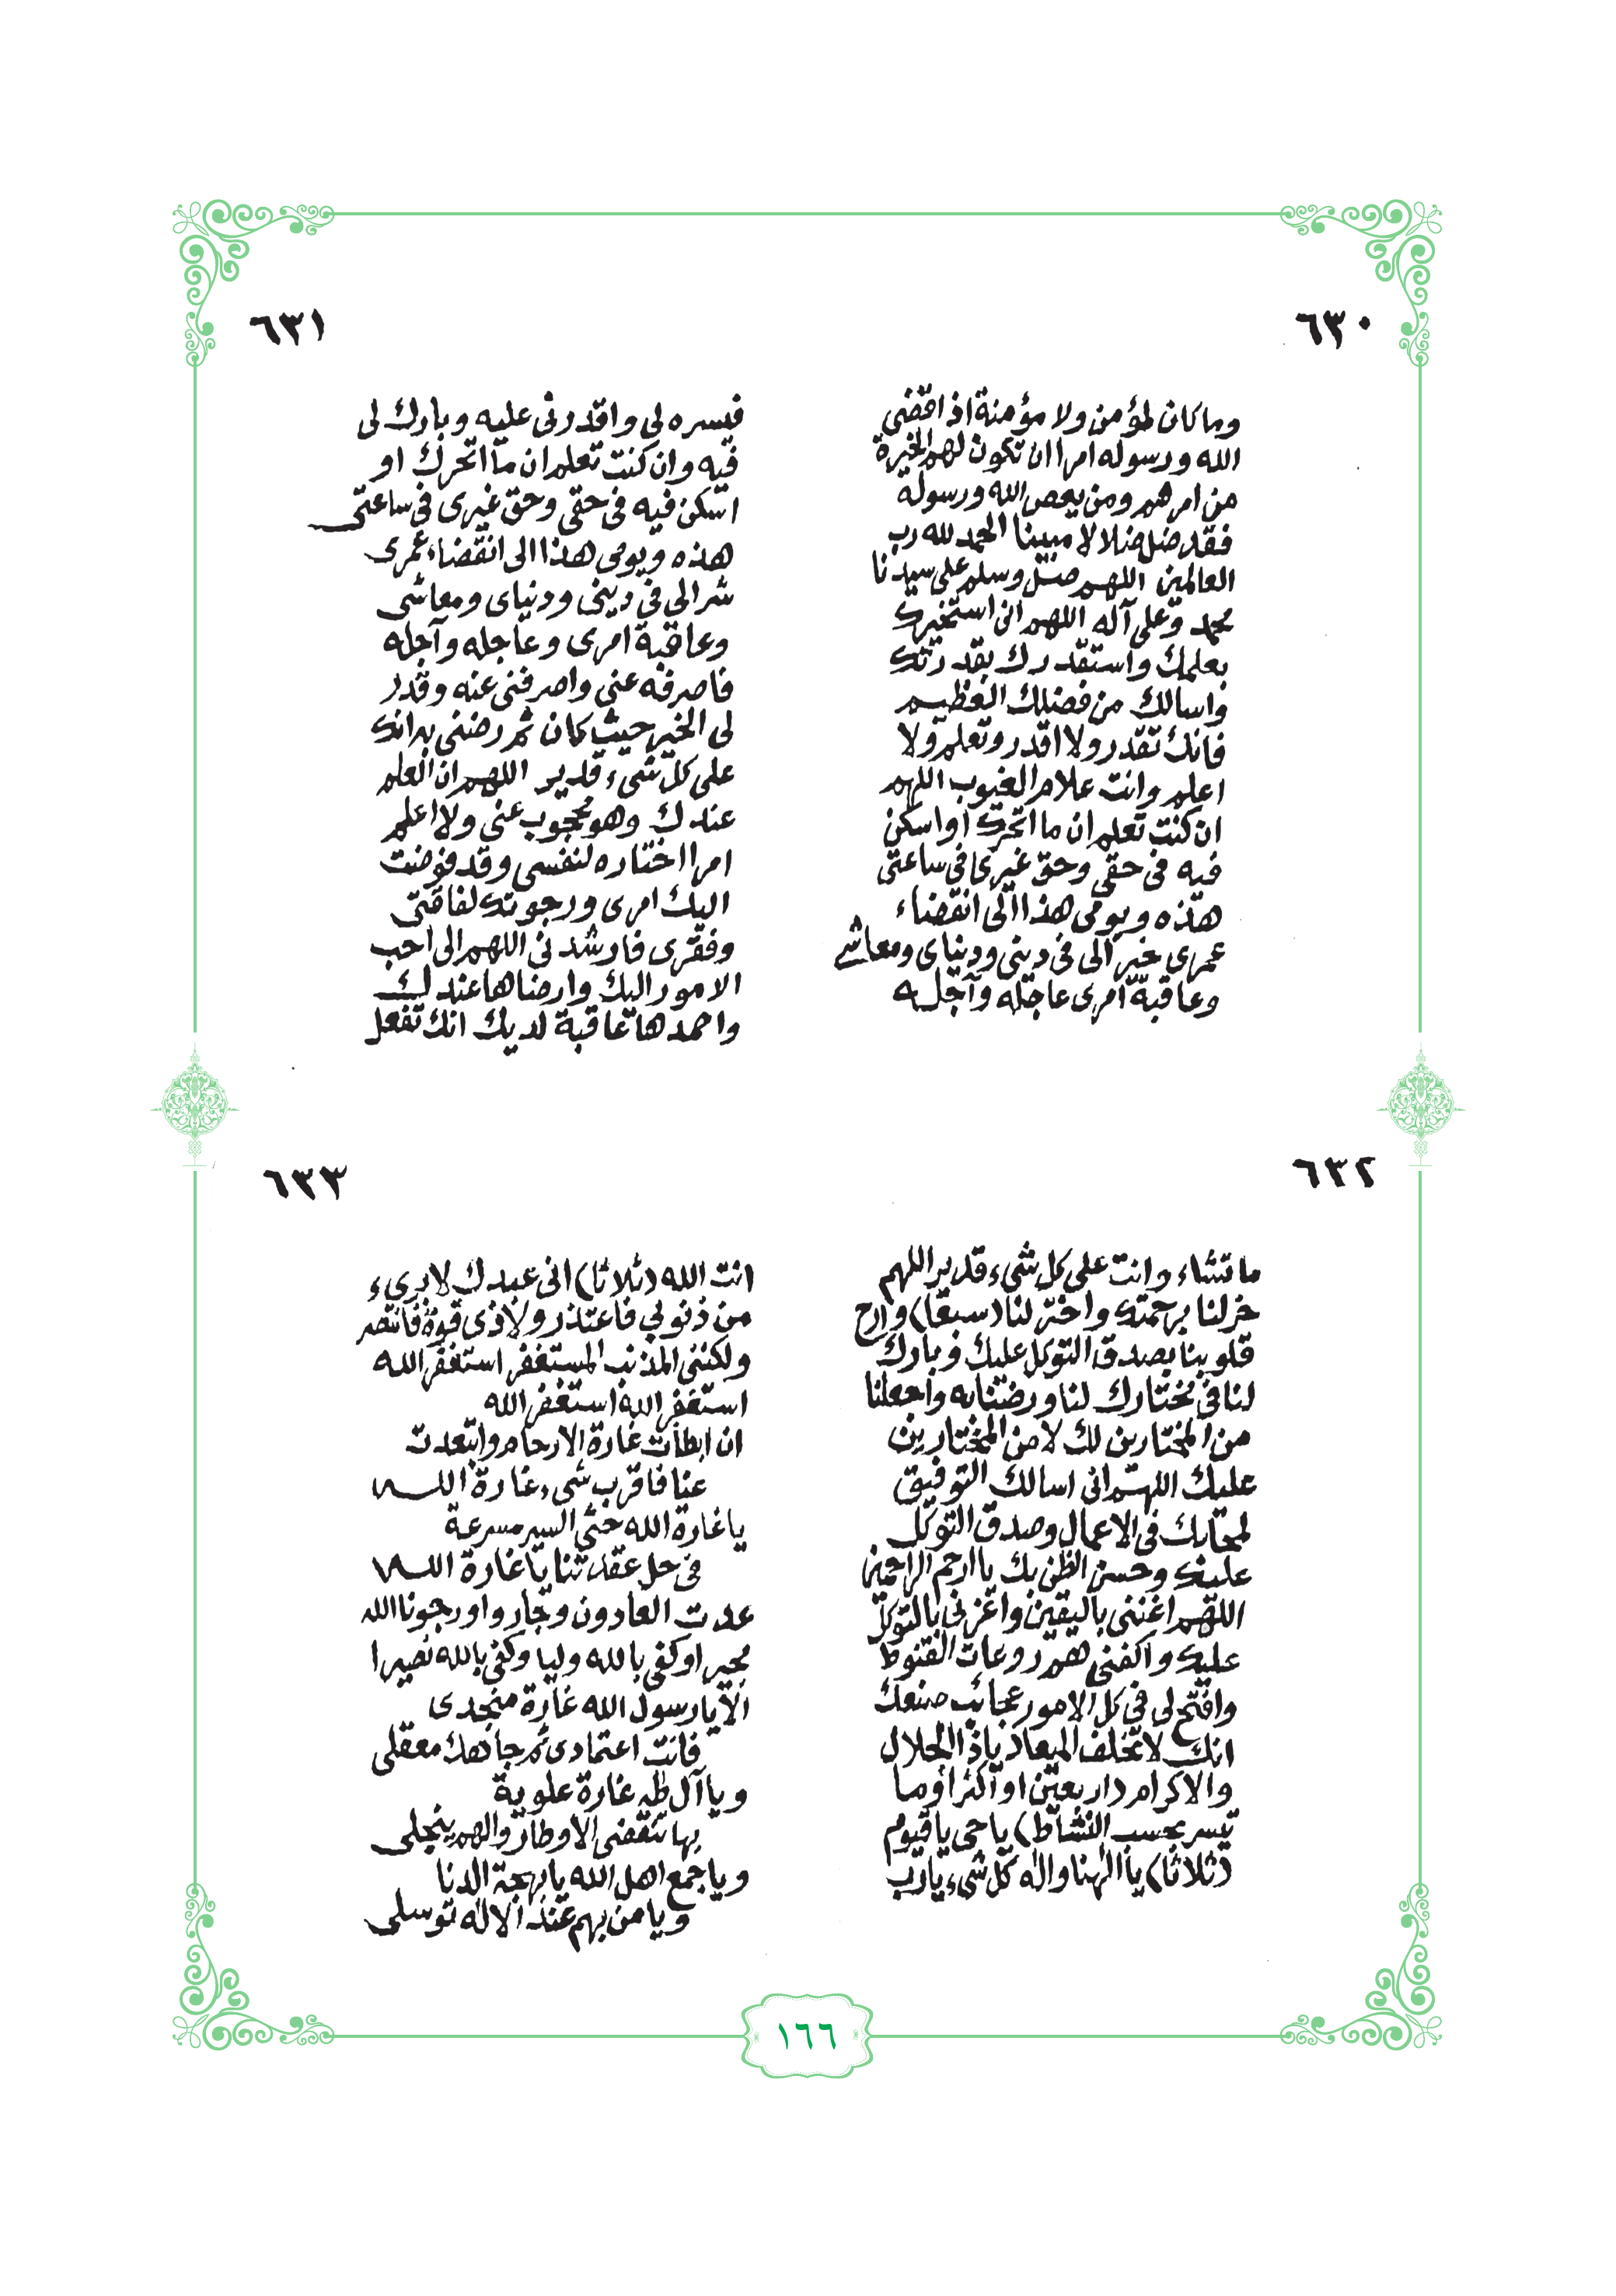 ٦٣٠
وما كان لمؤمن ولا مؤمنة اذا قضى
الله ورسوله امرا ان تكون لهم الخيرة
من امرهم ومن يعص الله ورسوله
فقد ضل ضلالا مبينا الحمد لله رب
العالمين اللهم صل وسلم على سيدنا
محمد وعلى آله اللهم اني استخيرك
بعلمك واستقدرك بقدرتك
واسالك من فضلك العظيم
فانك تقدر ولا اقدر وتعلم ولا
اعلم وانت علام الغيوب اللهم
ان كنت تعلم ان ما اتحرك او اسكن
فيه في حقي وحق غيري في ساعتي
هذه ويومي هذا الى انقضاء
عمري خير الى في ديني ودنياى ومعاشي
وعاقبة امرى عاجله وآجله
٦٣١
فيسره لي واقدرني عليه وبارك لى
فيه وان كنت تعلم ان ما اتحرك او
اسكن فيه في حقي وحق غيرى في ساعتى
هذه ويومى هذا الى انقضاء عمرى
شرا لي في ديني ودنياى ومعاشى
وعاقبة امرى وعاجله وآجله
فاصرفه عني واصرفني عنه وقدر
لى الخير حيث كان ثم رضني به انك
على كل شىء قدير اللهم ان العلم
عندك وهو محجوب عني ولا اعلم
امرا اختاره لنفسى وقد فوضت
اليك امرى ورجوتك لفاقتى
وفقرى فارشدنى اللهم الى احب
الامور اليك وارضاها عندك
واحمدها عاقبة لديك انك تفعل
٦٣٢
ما تشاء وانت على كل شىء قدير اللهم
خر لنا برحمتك واختر لنا (سبعا) وارح
قلوبنا بصدق التوكل عليك وبارك
لنا في مختارك لنا ورضنا به واجعلنا
من المختارين لك لا من المختارين
عليك اللهم انى اسالك التوفيق
لمحابك في الاعمال وصدق التوكل
عليك وحسن الظن بك يا ارحم الراحمين
اللهم اغننى باليقين واعزنى بالتوكل
عليك واكفنى هم روعات القنوط
وافتح لى في كل الامور عجائب صنعك
انك لا تخلف الميعاد ياذا الجلال
والاكرام (اربعين او اكثر أو ما
تيسر بحسب النشاط) يا حى يا قيوم
(ثلاثا) يا الهنا واله كل شىء يارب
٦٣٣
انت الله (ثلاثا) انى عبدك لا برىء
من ذنوبي فاعتذر ولا ذى قوة فانتصر
ولكننى المذنب المستغفر استغفر الله
استغفر الله استغفر الله
ان ابطأت غارة الارحام وابتعدت
عنا فاقرب شىء غارة الله
يا غارة الله حثى السير مسرعة
فى حل عقدتنا يا غارة الله
عدت العادون وجاروا ورجونا الله
مجيرا وكفى بالله وليا وكفى بالله نصيرا
ألا يا رسول الله غارة منجدى
فانت اعتمادى ثم جاهك معقلى
ويا آل طه غارة علوية
بها تنقضى الاوطار والهم ينجلى
ويا جمع اهل الله يا بهجة الدنا
ويا من بهم عند الاله توسلى
١٦٦